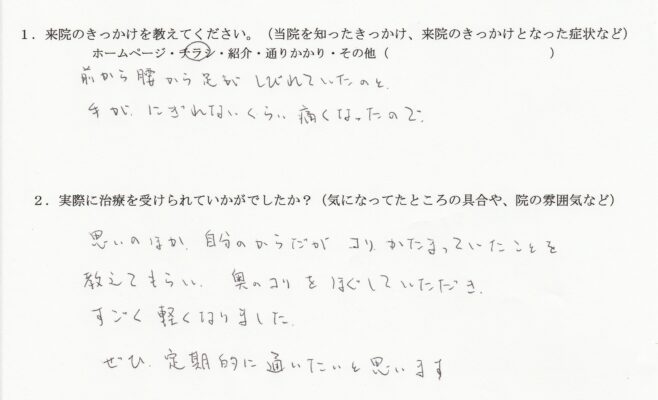 1．来院のきっかけを教えてください。（当院を知ったきっかけ、来院のきっかけとなった症状など）
ホームページ・チラシ・紹介・通りかかり・その他（　　　　　　　　　　　　）
前から腰から足が しびれていたのと、
手が、にぎれないくらい 痛くなったので。
2．実際に治療を受けられていかがでしたか？（気になってたところの具合や、院の雰囲気など）
思いのほか、自分のからだが コリ、かたまっていたことを
教えてもらい、奥のコリを ほぐしていただき、
すごく 軽くなりました。
ぜひ、定期的に 通いたいと思います